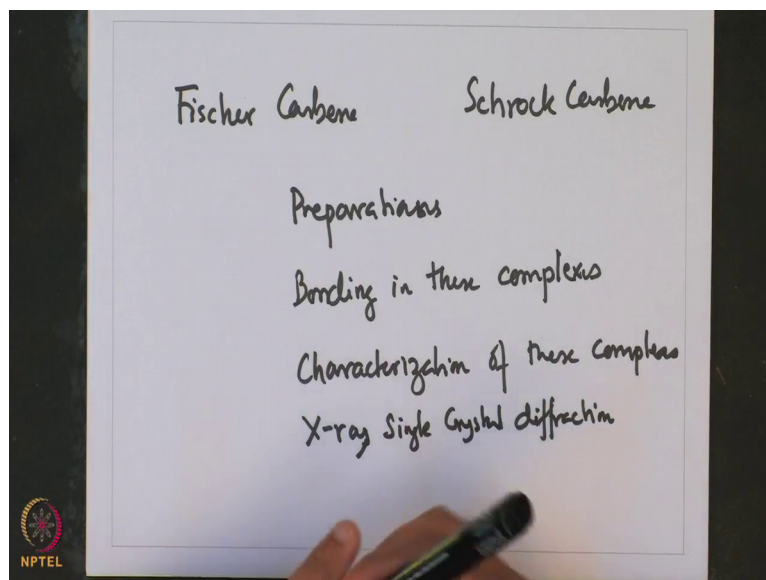 Fischer Carbene Schrock Carbene
Preparations
Bonding in these complexes
Characterization of these Complexes
X-ray Single Crystal diffraction
NPTEL